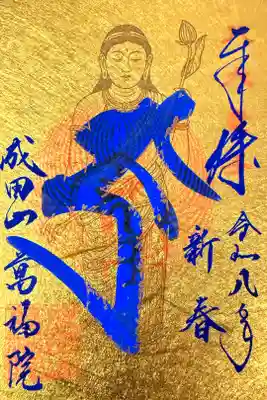 奉拝
令和八年
新春
成田山
高福院